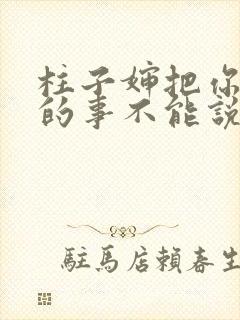 柱子婶把你
的事不能說
駐馬店賴春生